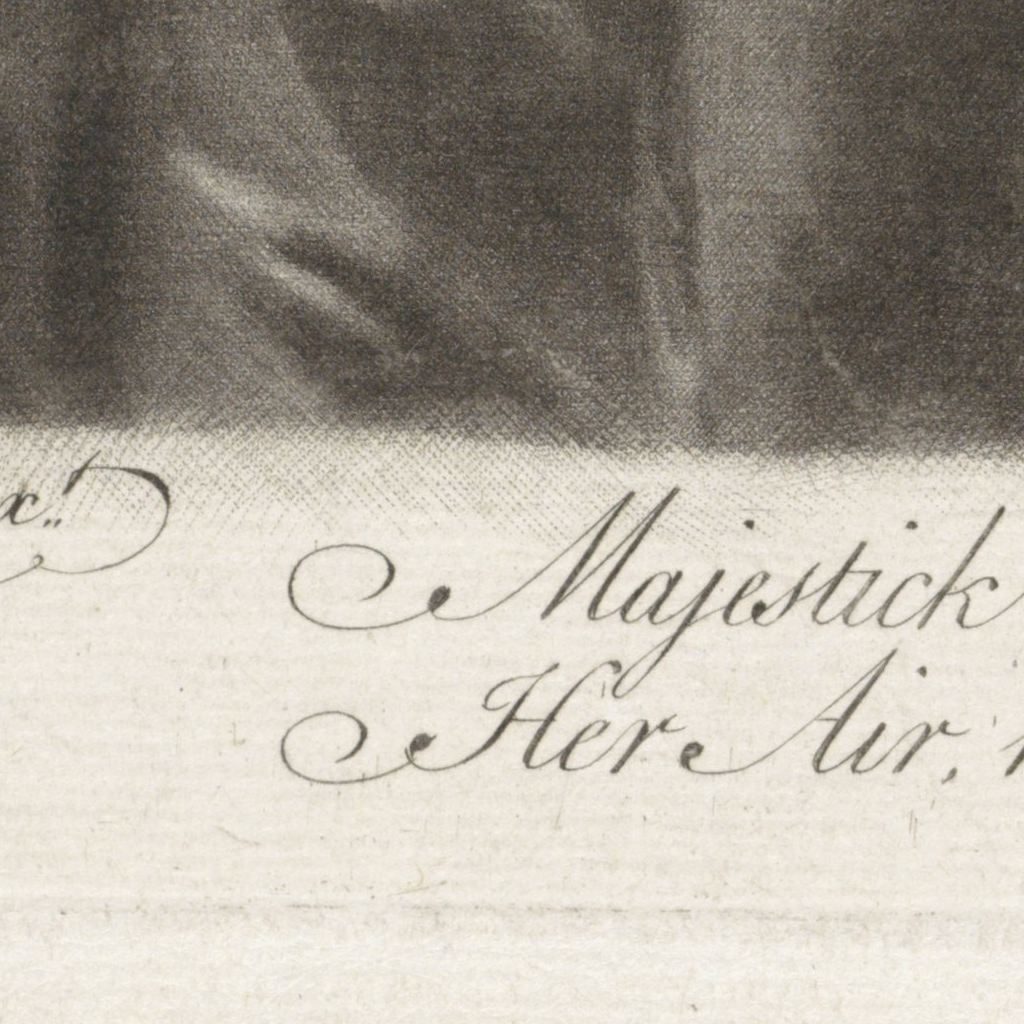 Majestick
Her Air,